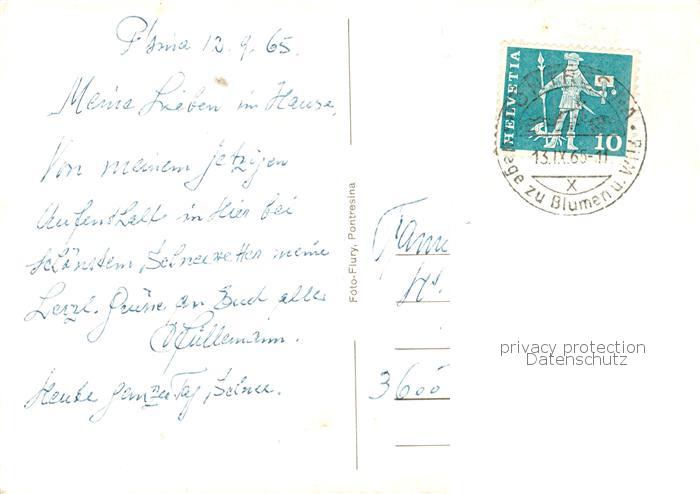 12.9.65.
Meine Lieben im Hause,
Von meinem jetzigen
Aufenthalt in hier bei
schönstem Schneewetter meine
Herzl. Grüsse an Euch alle
Heute ganzer Tag Schnee.
Foto-Flury, Pontresina
HELVETIA
10
13.IX.65-11
X
ege zu Blumen u. Wild
Fami
3600
privacy protection
Datenschutz